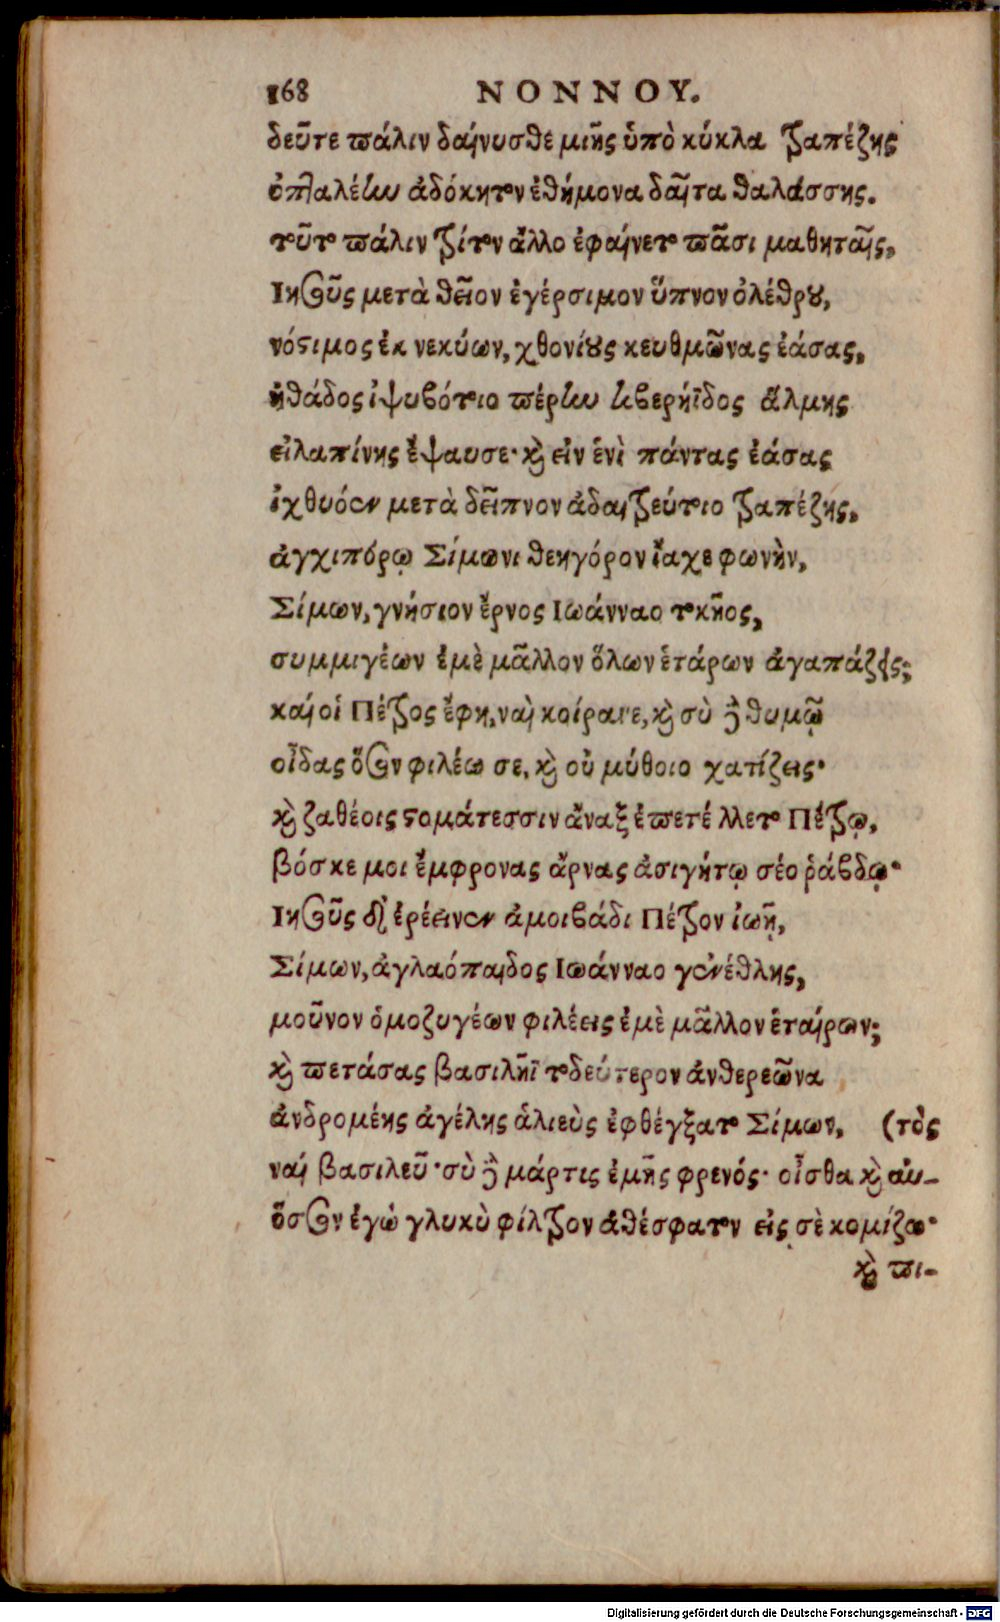 168 ΝΟΝΝΟΥ.
δεῦτε πάλιν δαίνυσθε μιῆς ὑπὸ κύκλα τραπέζης
ὀπταλέην ἀδόκητον ἐθήμονα δαῖτα θαλάσσης.
τοῦτο πάλιν τρίτον ἄλλο ἐφαίνετο πᾶσι μαθηταῖς,
Ιησοῦς μετὰ θεῖον ἐγέρσιμον ὕπνον ὀλέθρου,
νόστιμος ἐκ νεκύων, χθονίους κευθμῶνας ἐάσας,
ἠθάδος ἰχθυβότοιο πέρην τιβερηΐδος ἅλμης
εἰλαπίνης ἔψαυσε· καὶ εἰν ἑνὶ πάντας ἐάσας
ἰχθυόεν μετὰ δεῖπνον ἀδαιτρεύτοιο τραπέζης,
ἀγχιπόρῳ Σίμωνι θεηγόρον ἴαχε φωνὴν,
Σίμων, γνήσιον ἔρνος Ιωάνναο τοκῆος,
συμμιγέων ἐμὲ μᾶλλον ὅλων ἑτάρων ἀγαπάζεις;
καί οἱ Πέτρος ἔφη, ναὶ κοίρανε, καὶ σὺ γὰρ θυμῷ
οἶδας ὅσσον φιλέω σε, καὶ οὐ μύθοιο χατίζεις·
καὶ ζαθέοις στομάτεσσιν ἄναξ ἐπετέλλετο Πέτρῳ,
βόσκε μοι ἔμφρονας ἄρνας ἀσιγήτῳ σέο ῥάβδῳ·
Ιησοῦς δ' ἐρέεινεν ἀμοιβάδι Πέτρον ἰωῇ,
Σίμων, ἀγλαόπαιδος Ιωάνναο γενέθλης,
μοῦνον ὁμοζυγέων φιλέεις ἐμὲ μᾶλλον ἑταίρων;
καὶ πετάσας βασιλῆϊ τοδεύτερον ἀνθερεῶνα
ἀνδρομέης ἀγέλης ἁλιεὺς ἐφθέγξατο Σίμων, (τὸς
ναί βασιλεῦ· σὺ γὰρ μάρτις ἐμῆς φρενός· οἶσθα καὶ αὐ-
ὅσσον ἐγὼ γλυκὺ φίλτρον ἀθέσφατον εἰς σὲ κομίζω·
καὶ πι-
Digitalisierung gefördert durch die Deutsche Forschungsgemeinschaft - DFG